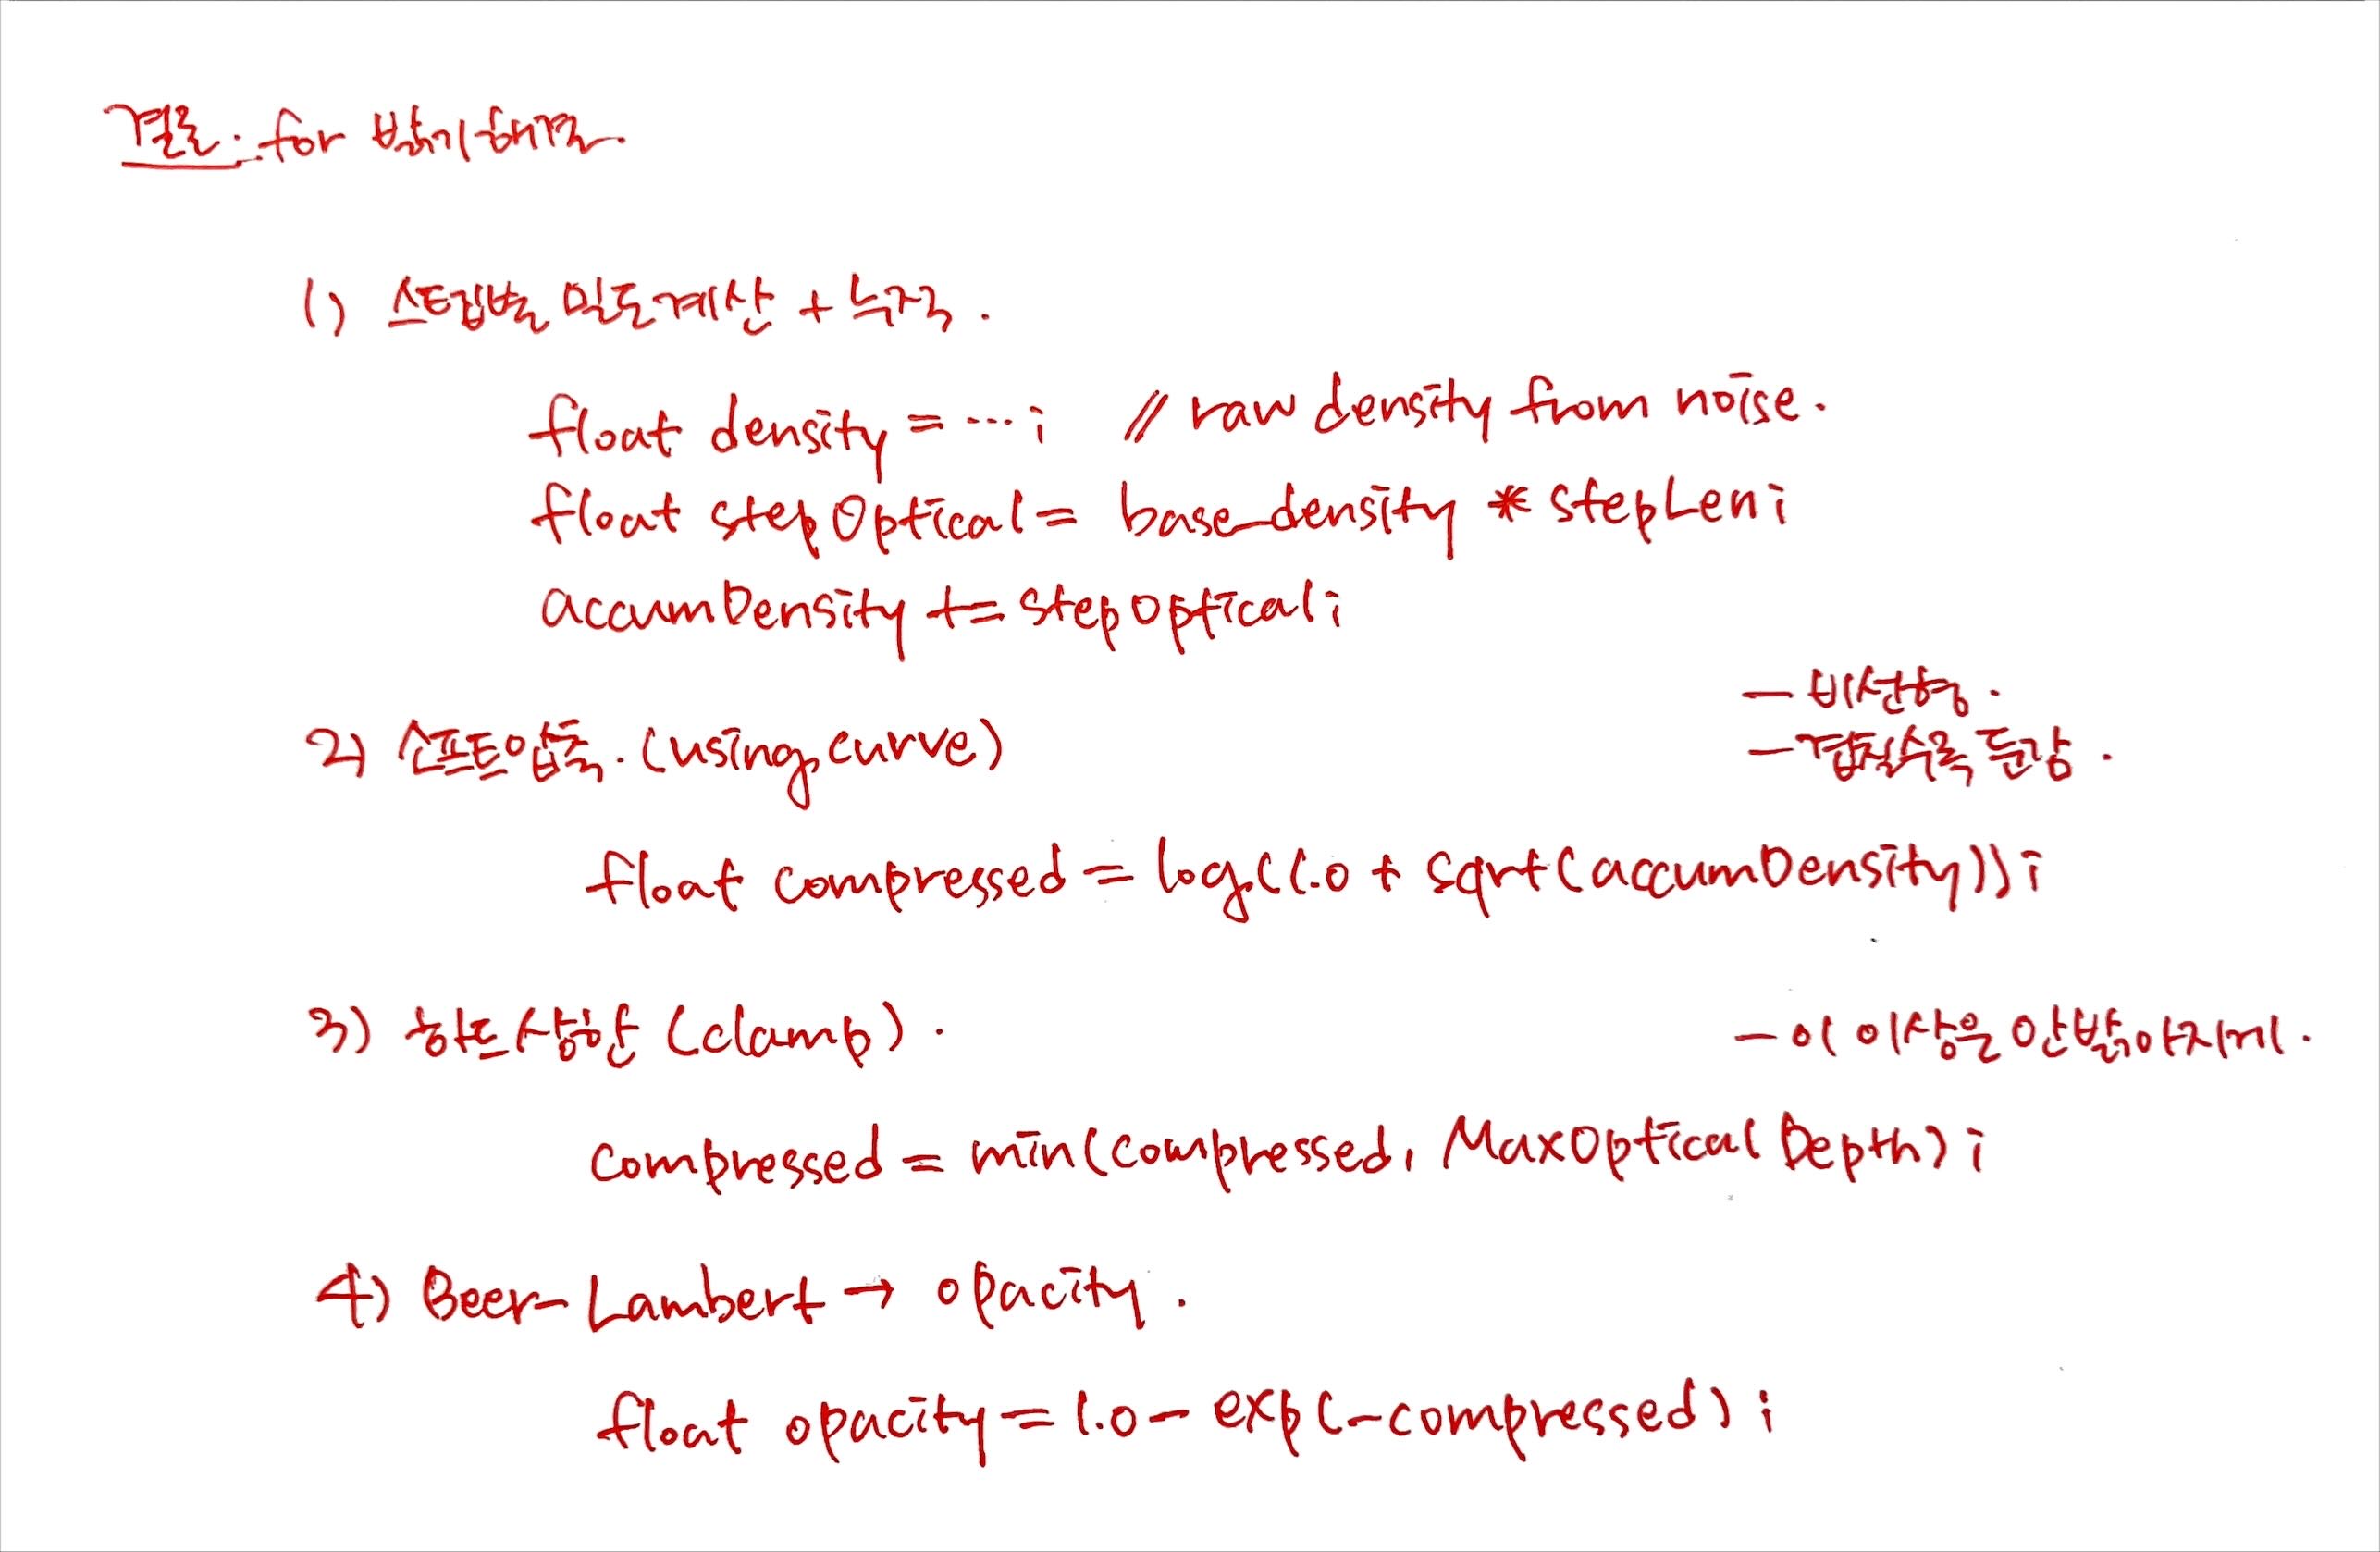 결론: for 밝기해결.
1) 스텝별 밀도계산 + 누적.
float density = ...; // raw density from noise.
float stepOptical = base_density * stepLen;
accumDensity += stepOptical;
- 비선형.
- 겹칠수록 둔감.
2) 소프트압축. (using curve)
float compressed = log(1.0 + sqrt(accumDensity));
3) 하드상한 (clamp).
- 이 이상은 안밝아지게.
compressed = min(compressed, MaxOpticalDepth);
4) Beer-Lambert → opacity.
float opacity = 1.0 - exp(-compressed);